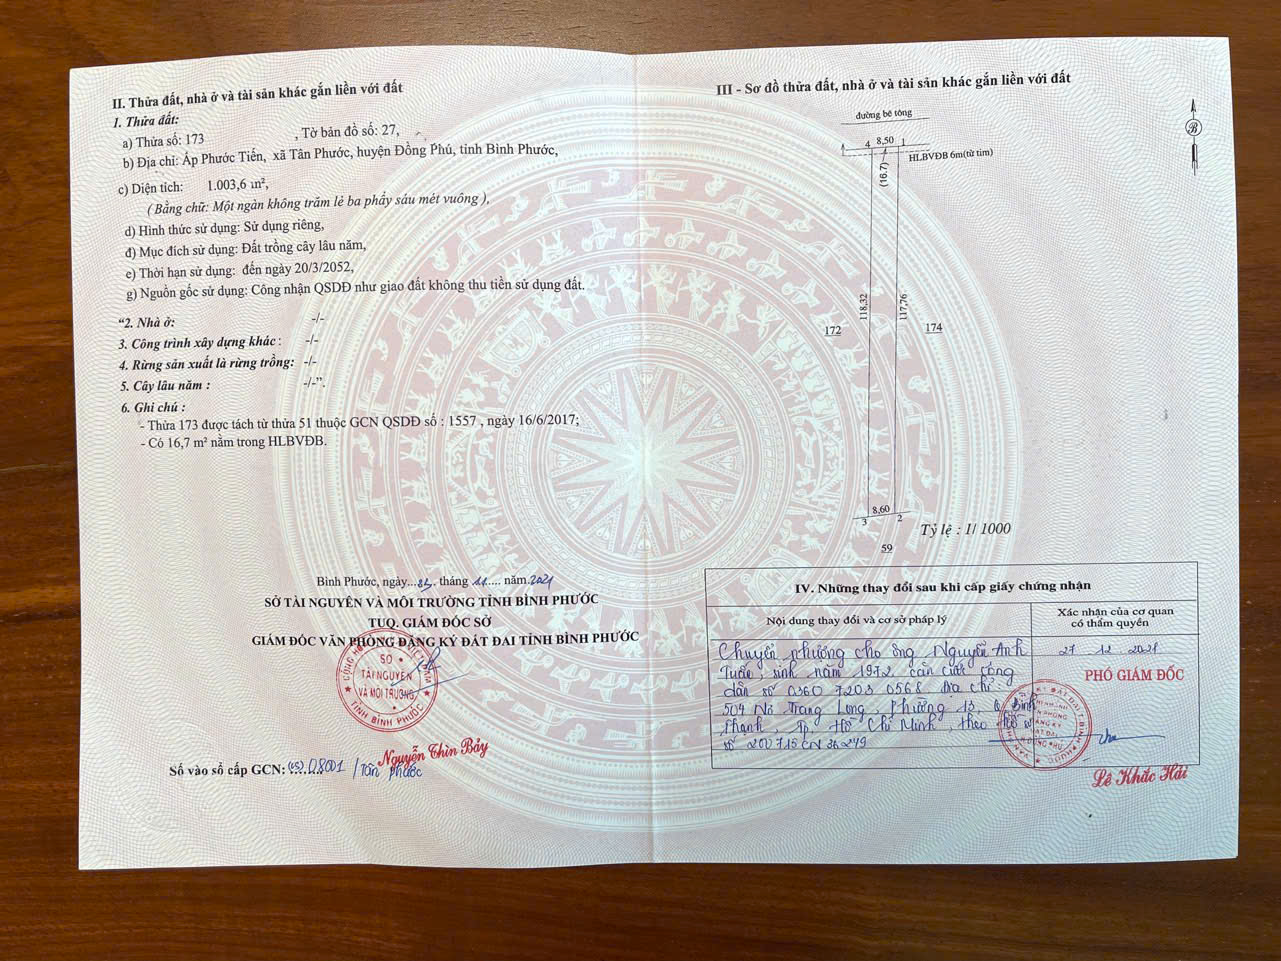 II. Thửa đất, nhà ở và tài sản khác gắn liền với đất
1. Thửa đất:
a) Thửa số: 173 , Tờ bản đồ số: 27,
b) Địa chỉ: Ấp Phước Tiến, xã Tân Phước, huyện Đồng Phú, tỉnh Bình Phước,
c) Diện tích: 1.003,6 m²,
( Bằng chữ: Một ngàn không trăm lẻ ba phẩy sáu mét vuông ),
d) Hình thức sử dụng: Sử dụng riêng,
đ) Mục đích sử dụng: Đất trồng cây lâu năm,
e) Thời hạn sử dụng: đến ngày 20/3/2052,
g) Nguồn gốc sử dụng: Công nhận QSDĐ như giao đất không thu tiền sử dụng đất.
“2. Nhà ở: -/-
3. Công trình xây dựng khác : -/-
4. Rừng sản xuất là rừng trồng: -/-
5. Cây lâu năm : -/-”.
6. Ghi chú :
- Thửa 173 được tách từ thửa 51 thuộc GCN QSDĐ số : 1557 , ngày 16/6/2017;
- Có 16,7 m² nằm trong HLBVĐB.
Bình Phước, ngày... tháng .11..... năm.2021
SỞ TÀI NGUYÊN VÀ MÔI TRƯỜNG TỈNH BÌNH PHƯỚC
TUQ. GIÁM ĐỐC SỞ
GIÁM ĐỐC VĂN PHÒNG ĐĂNG KÝ ĐẤT ĐAI TỈNH BÌNH PHƯỚC
SỞ
TÀI NGUYÊN
VÀ MÔI TRƯỜNG
TỈNH BÌNH PHƯỚC
Nguyễn Thìn Bảy
Số vào sổ cấp GCN: (CS) 08001 / Tân Phước
III - Sơ đồ thửa đất, nhà ở và tài sản khác gắn liền với đất
đường bê tông
4 8,50 1
HLBVĐB 6m(từ tim)
(16.7)
B
118,32
117,76
172
174
8,60
3 2
59
Tỷ lệ : 1/ 1000
IV. Những thay đổi sau khi cấp giấy chứng nhận
Nội dung thay đổi và cơ sở pháp lý
Xác nhận của cơ quan
có thẩm quyền
Chuyển nhượng cho ông Nguyễn Anh
Tuấn, sinh năm 1972, căn cước công
dân số 036072030568 địa chỉ
509 Nơ Trang Long, Phường 13, Q Bình
Thạnh, Tp. Hồ Chí Minh, theo hồ sơ
số 200715 CN 36249
27 12 2021
PHÓ GIÁM ĐỐC
Lê Khắc Hải